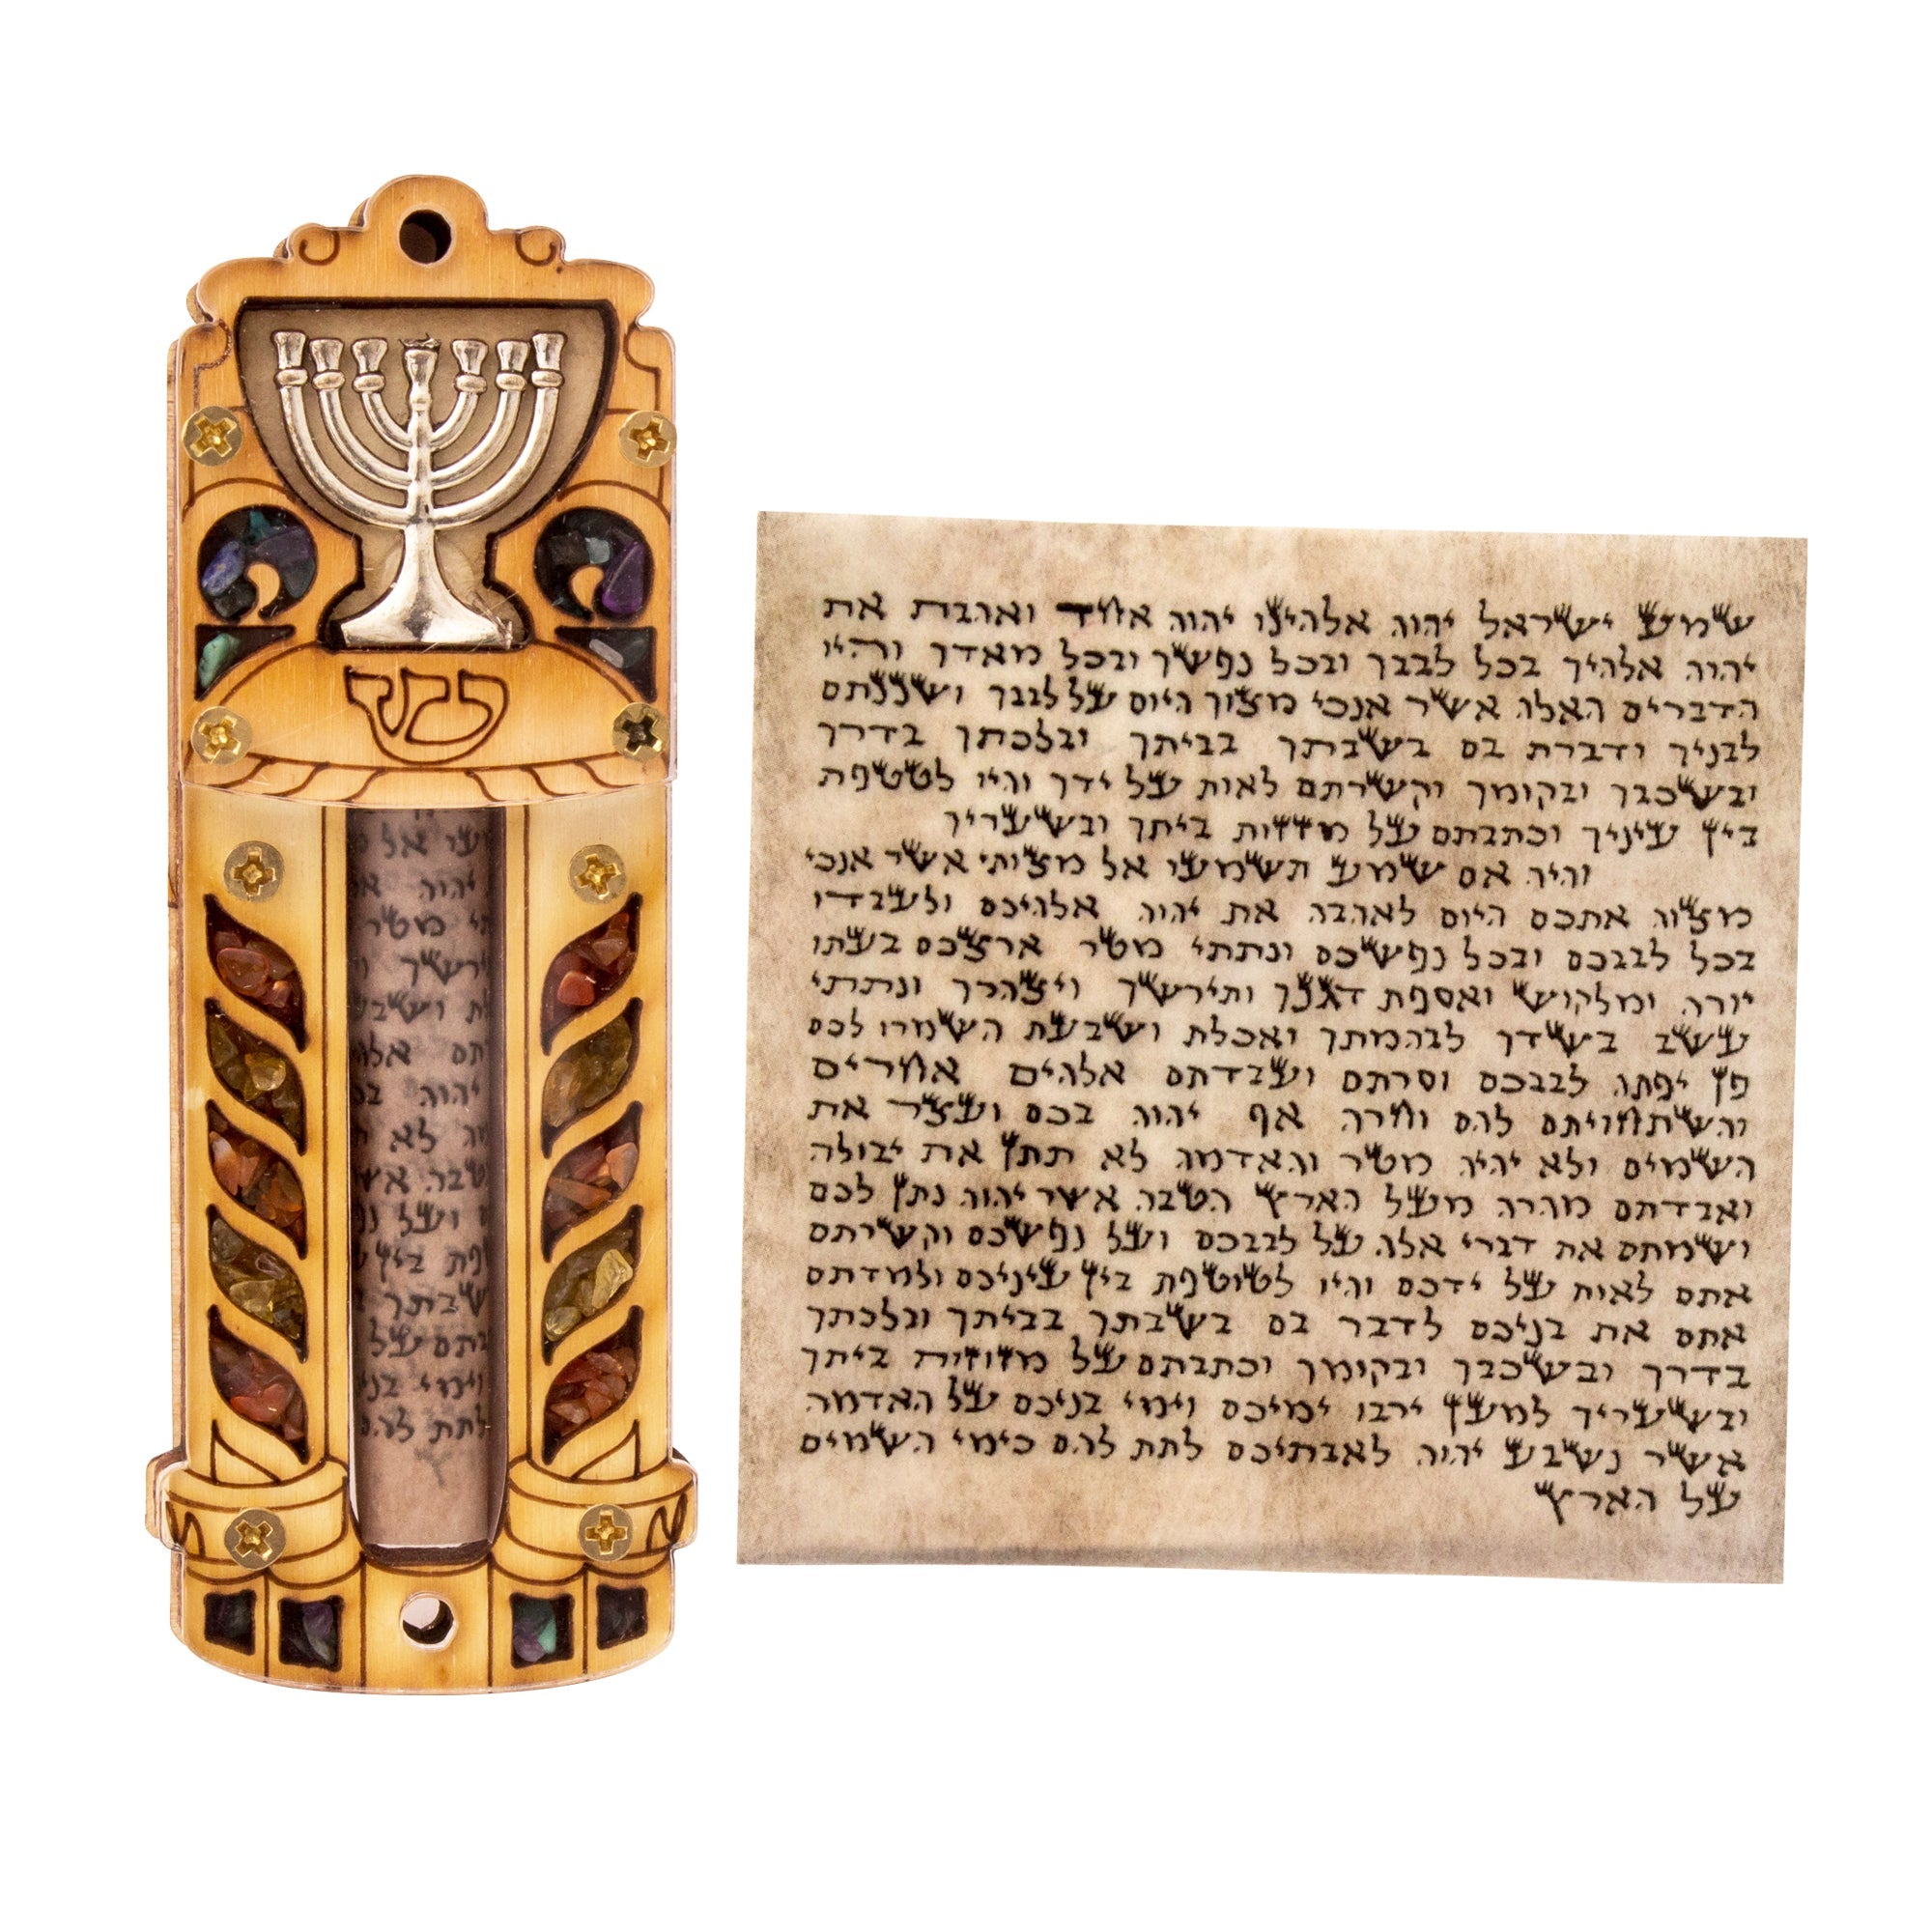 ש
שמע ישראל יהוה אלהינו יהוה אחד ואהבת את
יהוה אלהיך בכל לבבך ובכל נפשך ובכל מאדך והיו
הדברים האלה אשר אנכי מצוך היום על לבבך ושננתם
לבניך ודברת בם בשבתך בביתך ובלכתך בדרך
ובשכבך ובקומך וקשרתם לאות על ידך והיו לטטפת
בין עיניך וכתבתם על מזזות ביתך ובשעריך
והיה אם שמע תשמעו אל מצותי אשר אנכי
מצוה אתכם היום לאהבה את יהוה אלהיכם ולעבדו
בכל לבבכם ובכל נפשכם ונתתי מטר ארצכם בעתו
יורה ומלקוש ואספת דגנך ותירשך ויצהרך ונתתי
עשב בשדך לבהמתך ואכלת ושבעת השמרו לכם
פן יפתה לבבכם וסרתם ועבדתם אלהים אחרים
והשתחויתם להם וחרה אף יהוה בכם ועצר את
השמים ולא יהיה מטר והאדמה לא תתן את יבולה
ואבדתם מהרה מעל הארץ הטבה אשר יהוה נתן לכם
ושמתם את דברי אלה על לבבכם ועל נפשכם וקשרתם
אתם לאות על ידכם והיו לטוטפת בין עיניכם ולמדתם
אתם את בניכם לדבר בם בשבתך בביתך ובלכתך
בדרך ובשכבך ובקומך וכתבתם על מזוזות ביתך
ובשעריך למען ירבו ימיכם וימי בניכם על האדמה
אשר נשבע יהוה לאבתיכם לתת להם כימי השמים
על הארץ